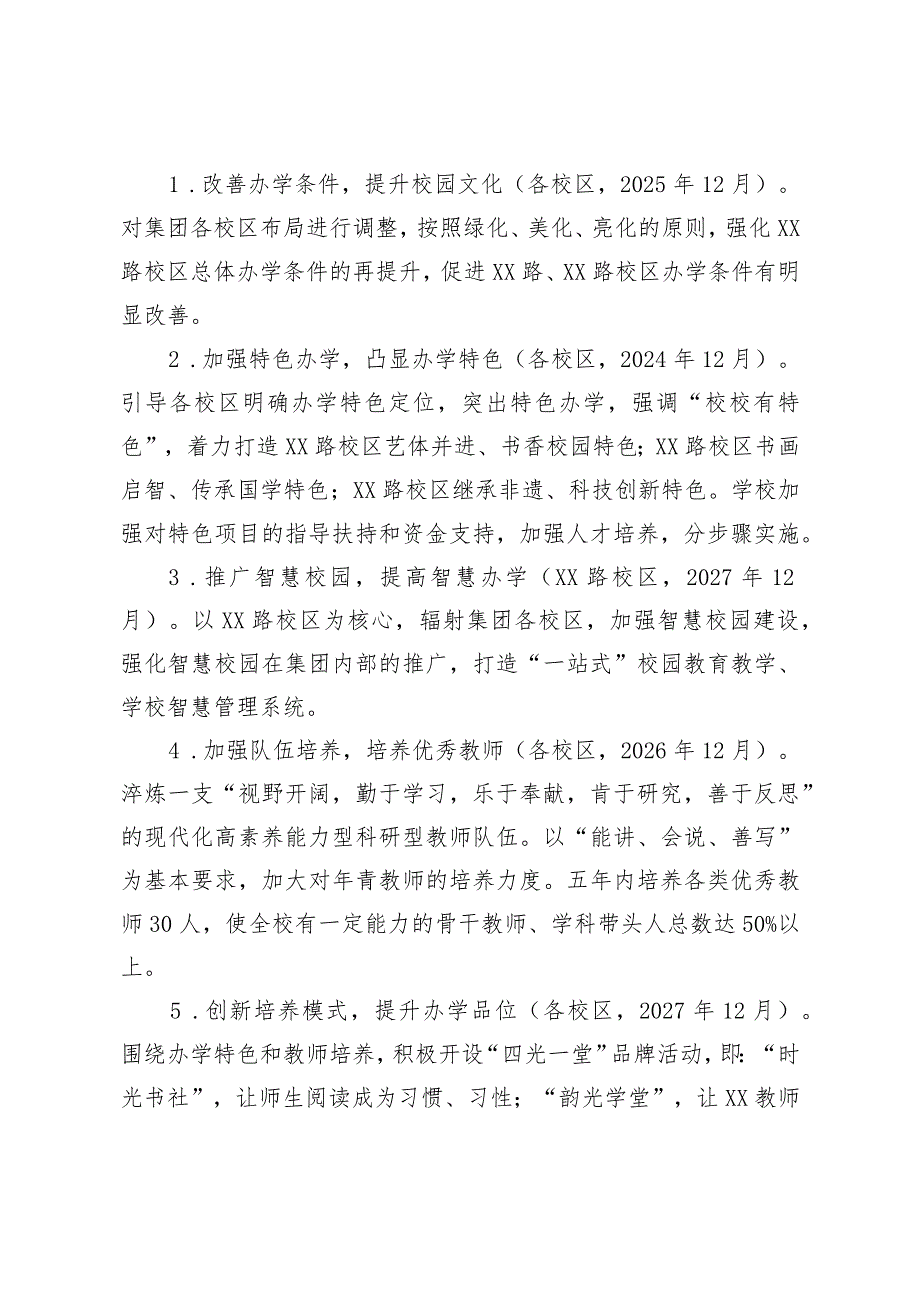 1 .改善办学条件，提升校园文化（各校区，2025 年 12 月）。
对集团各校区布局进行调整，按照绿化、美化、亮化的原则，强化 XX
路校区总体办学条件的再提升，促进 XX 路、XX 路校区办学条件有明
显改善。
2 .加强特色办学，凸显办学特色（各校区，2024 年 12 月）。
引导各校区明确办学特色定位，突出特色办学，强调“校校有特
色”，着力打造 XX 路校区艺体并进、书香校园特色；XX 路校区书画
启智、传承国学特色；XX 路校区继承非遗、科技创新特色。学校加
强对特色项目的指导扶持和资金支持，加强人才培养，分步骤实施。
3 .推广智慧校园，提高智慧办学（XX 路校区，2027 年 12
月）。以 XX 路校区为核心，辐射集团各校区，加强智慧校园建设，
强化智慧校园在集团内部的推广，打造“一站式”校园教育教学、
学校智慧管理系统。
4 .加强队伍培养，培养优秀教师（各校区，2026 年 12 月）。
淬炼一支“视野开阔，勤于学习，乐于奉献，肯于研究，善于反思”
的现代化高素养能力型科研型教师队伍。以“能讲、会说、善写”
为基本要求，加大对年青教师的培养力度。五年内培养各类优秀教
师 30 人，使全校有一定能力的骨干教师、学科带头人总数达 50%以
上。
5 .创新培养模式，提升办学品位（各校区，2027 年 12 月）。
围绕办学特色和教师培养，积极开设“四光一堂”品牌活动，即：“时
光书社”，让师生阅读成为习惯、习性；“韵光学堂”，让 XX 教师